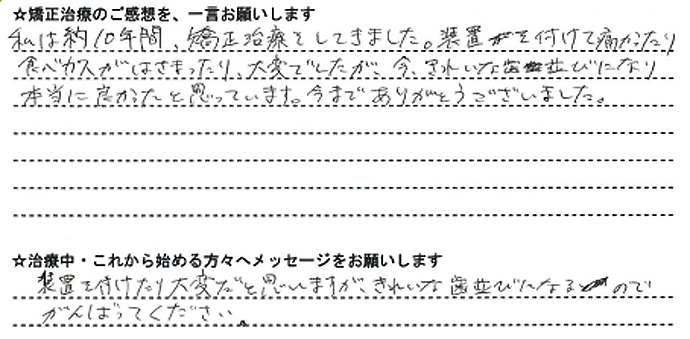 ☆矯正治療のご感想を、一言お願いします
私は約10年間、矯正治療をしてきました。装置を付けて痛かったり
食べカスがはさまったり、大変でしたが、今、きれいな歯並びになり
本当に良かったと思っています。今までありがとうございました。
☆治療中・これから始める方々へメッセージをお願いします
装置を付けたり大変だと思いますが、きれいな歯並びになるので
がんばってください。